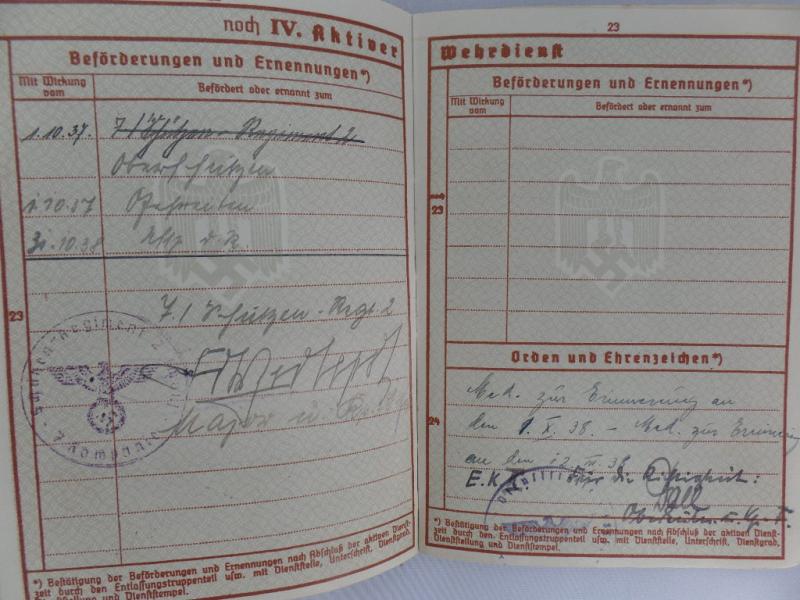 noch IV. Aktiver
Beförderungen und Ernennungen*)
Mit Wirkung vom
Befördert oder ernannt zum
1.10.37. 7./Schützen-Regiment 2
Oberschützen
1.10.37 Gefreiten
31.10.38 d. R.
23
7./Schützen-Rgt. 2
Schützen-Regiment 2
7. Kompanie
Major u.
*) Bestätigung der Beförderungen und Ernennungen nach Abschluß der aktiven Dienst-
zeit durch den Entlassungstruppenteil usw. mit Dienststelle, Unterschrift, Dienstgrad,
Dienststellung und Dienststempel.
23
Wehrdienst
Beförderungen und Ernennungen*)
Mit Wirkung vom
Befördert oder ernannt zum
23
Orden und Ehrenzeichen*)
Med. zur Erinnerung an
den 1. X. 38. – Med. zur Erinnerung
24
an den
E.K. Für die Richtigkeit:
*) Bestätigung der Beförderungen und Ernennungen nach Abschluß der aktiven Dienst-
zeit durch den Entlassungstruppenteil usw. mit Dienststelle, Unterschrift, Dienstgrad,
Dienststellung und Dienststempel.